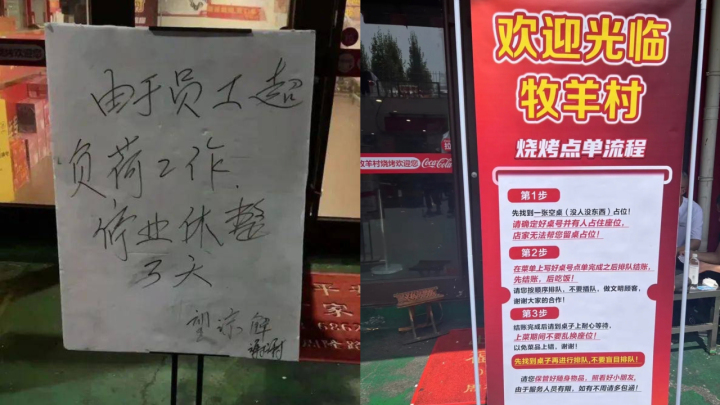 由于员工超
负荷工作.
停业休整
3天
望谅解
谢谢
欢迎光临
牧羊村
烧烤点单流程
第1步
先找到一张空桌（没人没东西）占位！
请确定好桌号并有人占住座位，
店家无法帮您留桌占位！
第2步
在菜单上写好桌号点单完成之后排队结账，
先结账，后吃饭！
请您按顺序排队，不要插队，做文明顾客，
谢谢大家的合作！
第3步
结账完成后请到桌子上耐心等待，
上菜期间不要乱换座位！
以免菜品上错，谢谢！
先找到桌子再进行排队,不要盲目排队!
请您保管好随身物品，照看好小朋友，
由于服务人员有限，如有不周请多包涵！
牧羊村烧烤欢迎您
Coca-Cola